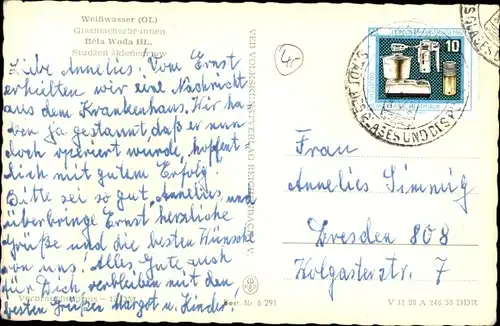 Weißwasser (OL)
Glasmacherbrunnen
Běła Woda HL.
Studzeń škleńcarjow
Liebe Annelies! Vom Ernst
erhielten wir eine Nachricht
aus dem Krankenhaus. Wir ha-
ben ja gestaunt, daß er nun
doch operiert wurde, hoffent-
lich mit gutem Erfolg.
Bitte sei so gut, Annelies, und
überbringe Ernst herzliche
Grüße und die besten Wünsche
von uns! Alles Gute auch
für Dich, verbleiben mit den
besten Grüßen Margot u. Kinder.
Verbraucherpreis
Best. Nr. 6 291
VEB VOLKSKUNSTVERLAG REICHENBACH
10
STADT DES GLASES UND DES
Frau
Annelies Simmig
Dresden 808
Wolgasterstr. 7
V 11 20 A 248 53 DDR